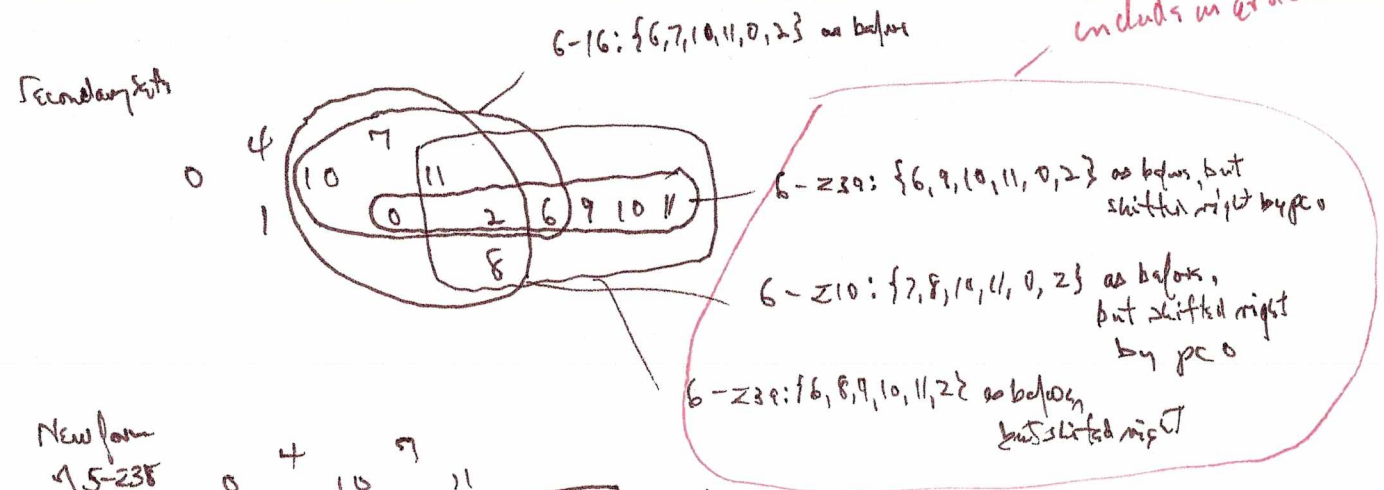 6-16: {6,7,10,11,0,2} as before
include in
Secondary Sets
4 7
0 10 11
1 0 2 6 9 10 11
8
6-Z39: {6,9,10,11,0,2} as before, but
shifted right by pc 0
6-Z10: {7,8,10,11,0,2} as before,
but shifted right
by pc 0
6-Z39: {6,8,9,10,11,2} as before,
but shifted right
New form
4 7
5-Z38 0 10 11